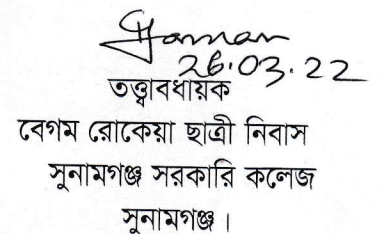 26.03.22
তত্ত্বাবধায়ক
বেগম রোকেয়া ছাত্রী নিবাস
সুনামগঞ্জ সরকারি কলেজ
সুনামগঞ্জ।